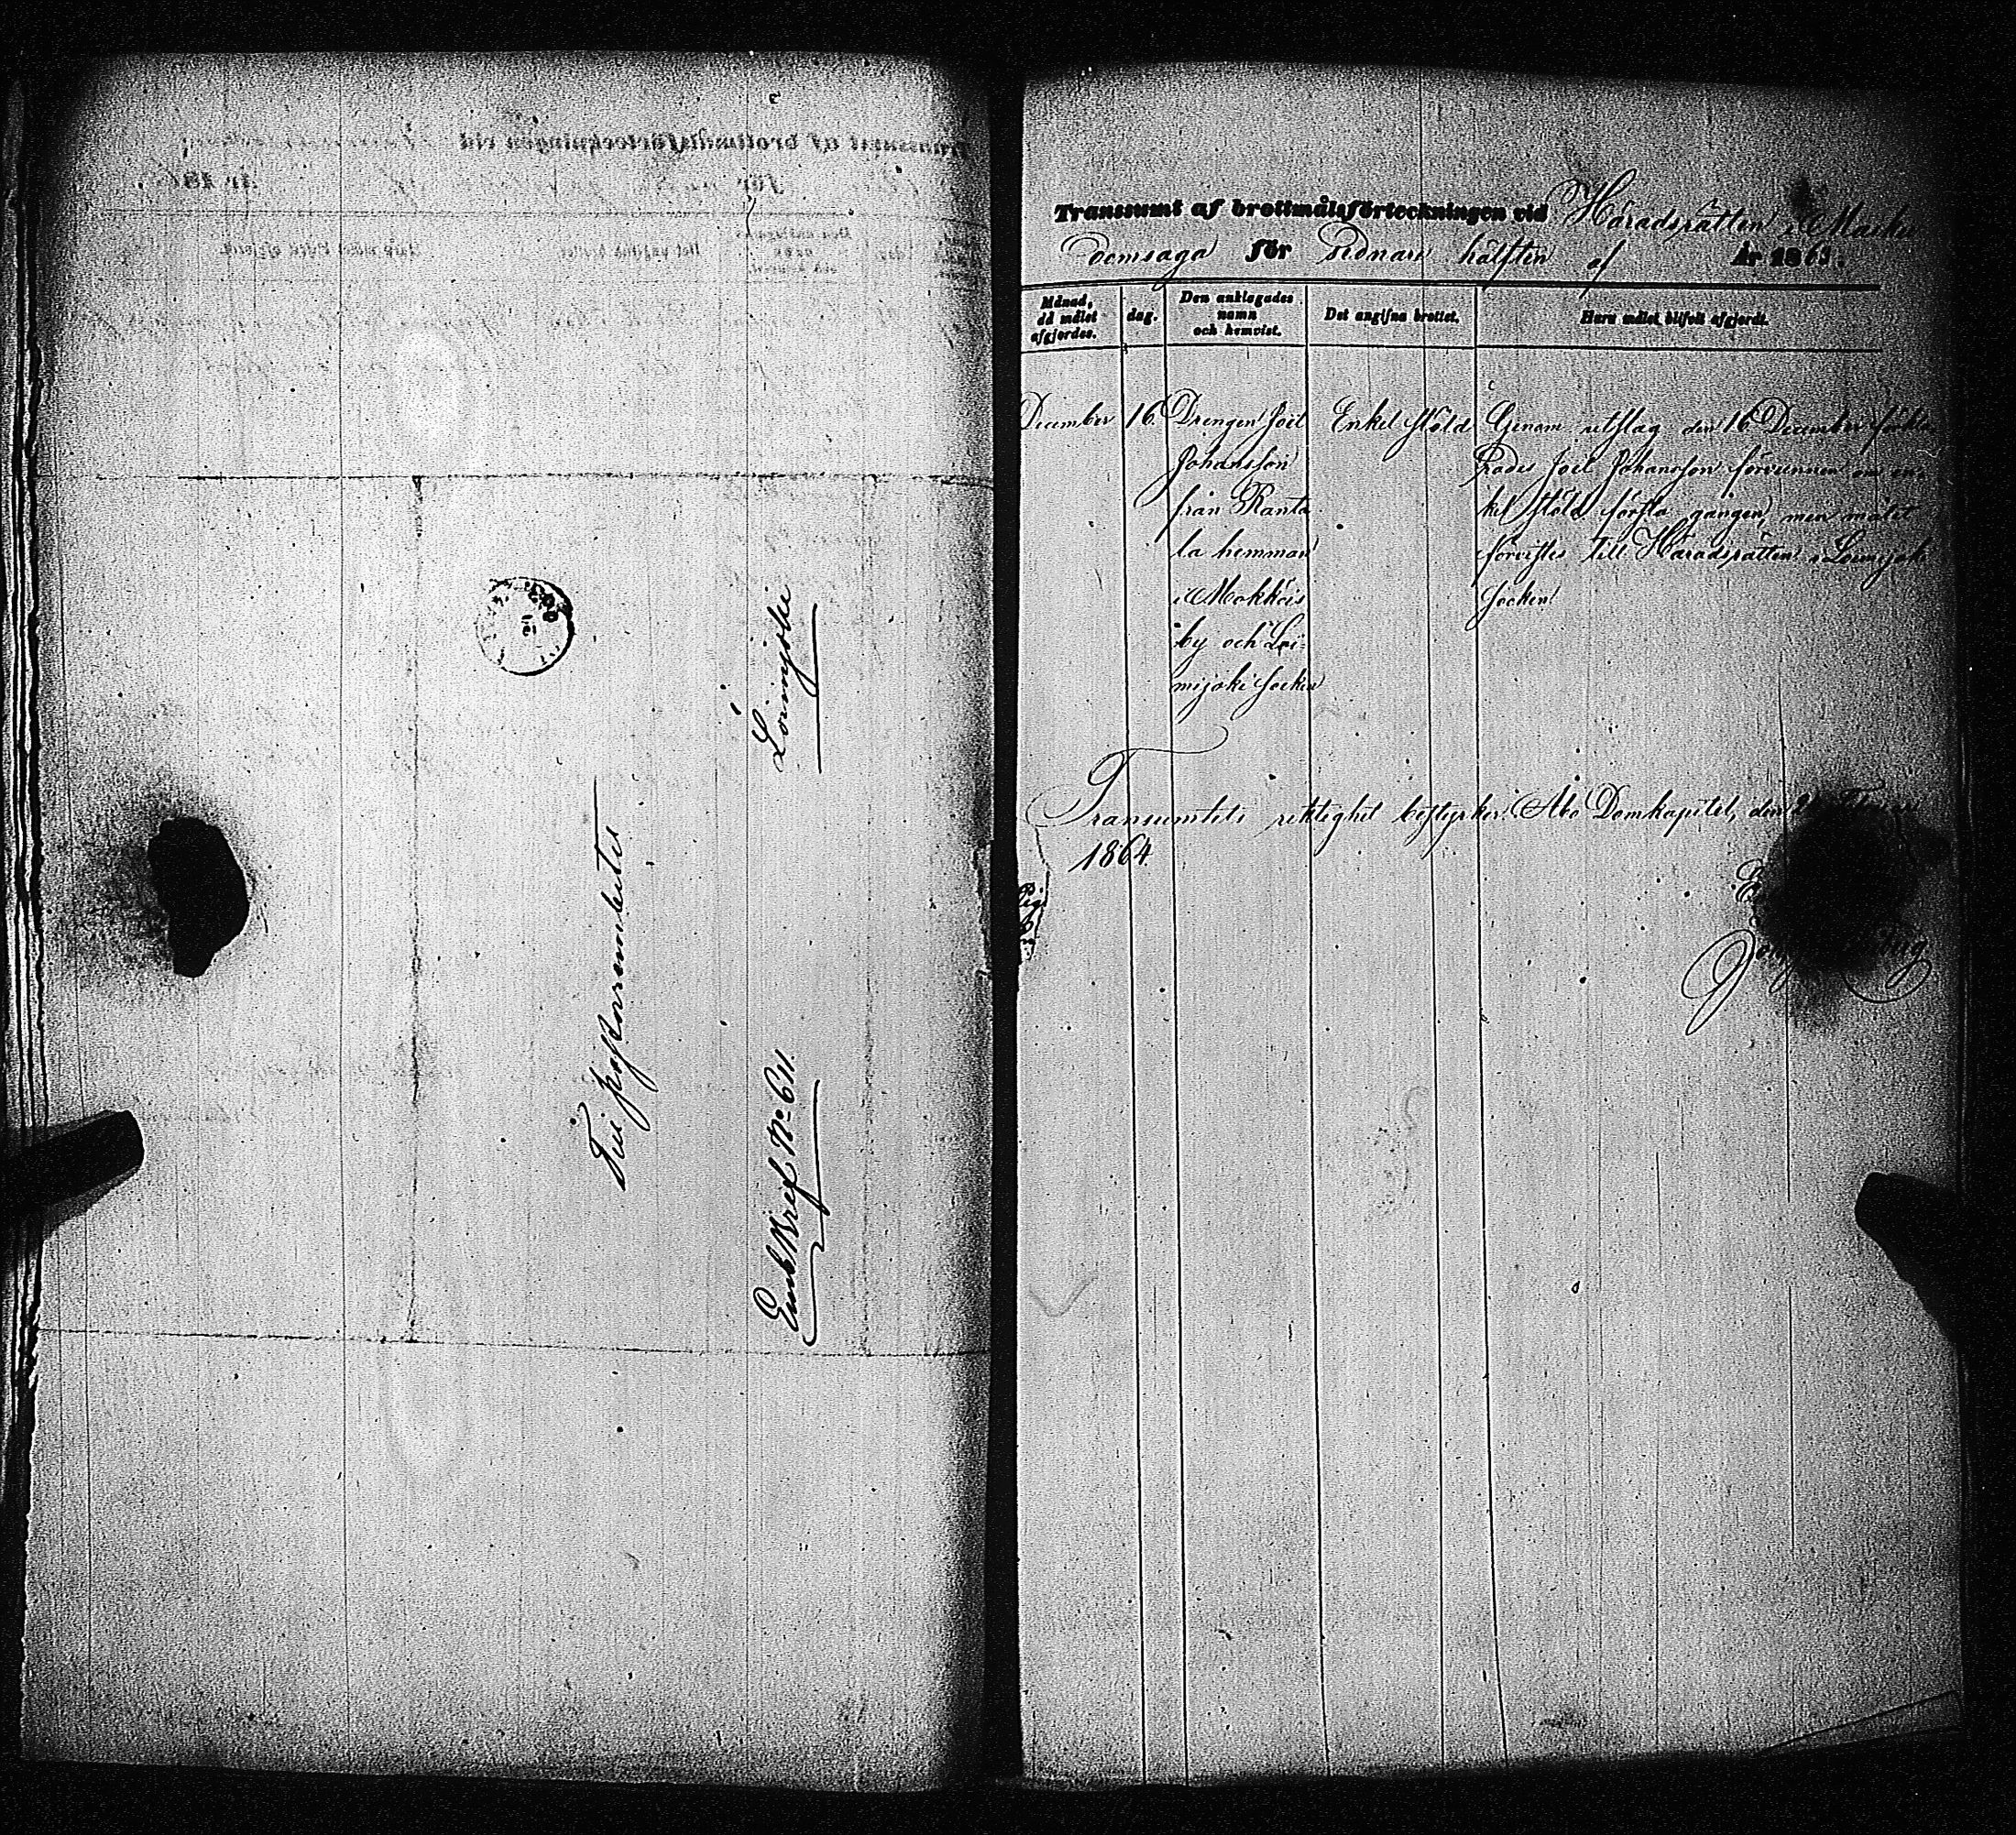 Till pastorsembetet
i
Loimijoki
Emb. Bref № 611.
Transsumt af brottmålsförteckningen vid Häradsrätten i Masku
Domsaga för sednare hälften af År 1863.
Månad, då målet afgjordes.
dag.
Den anklagades namn och hemvist.
Det angifna brottet.
Huru målet blifvit afgjordt.
December 16. Drengen Joel Enkel stöld Genom utslag den 16 December förkla-
Johansson rades Joel Johansson förvunnen om en-
från Ranta kel stöld första gången, men målet
la hemman förvistes till Häradsrätten i Loimijoki
i Mokkois Socken
by och Loi-
mijoki socken
Transumtets riktighet bestyrker: Åbo Domkapitel, den
1864.